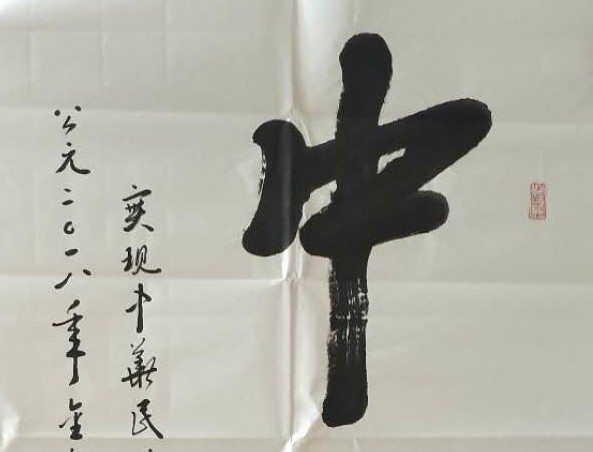 中
实现中华民
公元二〇一八年金